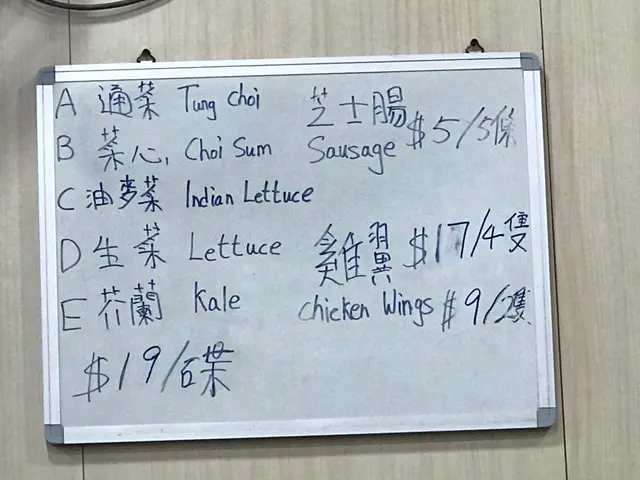 A 通菜 Tung Choi
B 菜心, Choi Sum
C 油麥菜 Indian Lettuce
D 生菜 Lettuce
E 芥蘭 Kale
$19/碟
芝士腸
Sausage $5/5條
雞翼 $17/4隻
Chicken Wings $9/2隻